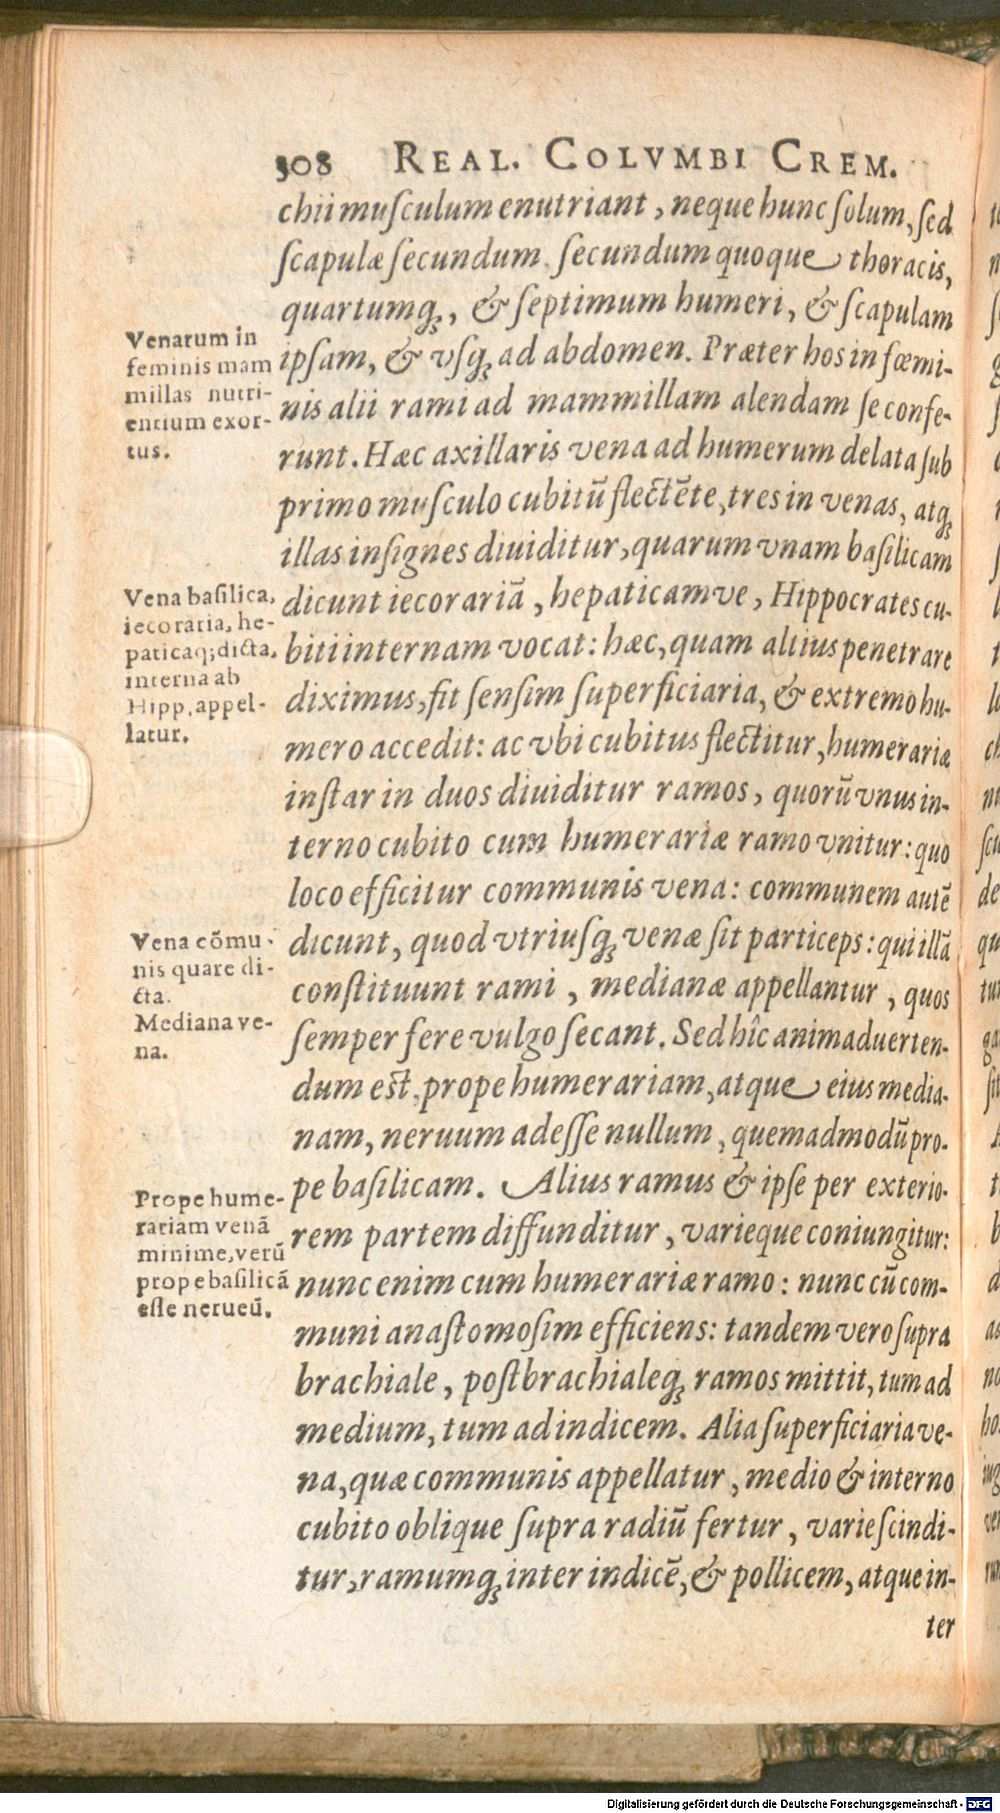 308 REAL. COLVMBI CREM.
chii musculum enutriant, neque hunc solum, sed
scapulæ secundum, secundum quoque thoracis,
quartumq́ꝫ, & septimum humeri, & scapulam
ipsam, & vsqꝫ ad abdomen. Præter hos in fœmi-
nis alii rami ad mammillam alendam se confe-
runt. Hæc axillaris vena ad humerum delata sub
primo musculo cubitū flectēte, tres in venas, atqꝫ
illas insignes diuiditur, quarum vnam basilicam
dicunt iecorariā, hepaticamve, Hippocrates cu-
biti internam vocat: hæc, quam altius penetrare
diximus, fit sensim superficiaria, & extremo hu-
mero accedit: ac vbi cubitus flectitur, humerariæ
instar in duos diuiditur ramos, quorū vnus in-
terno cubito cum humerariæ ramo vnitur: quo
loco efficitur communis vena: communem autē
dicunt, quod vtriusqꝫ venæ sit particeps: qui illā
constituunt rami, medianæ appellantur, quos
semper fere vulgo secant. Sed hîc animaduerten-
dum est, prope humerariam, atque eius media-
nam, neruum adesse nullum, quemadmodū pro-
pe basilicam. Alius ramus & ipse per exterio-
rem partem diffunditur, varieque coniungitur:
nunc enim cum humerariæ ramo: nunc cū com-
muni anastomosim efficiens: tandem vero supra
brachiale, postbrachialeqꝫ ramos mittit, tum ad
medium, tum ad indicem. Alia superficiaria ve-
na, quæ communis appellatur, medio & interno
cubito oblique supra radiū fertur, varie scindi-
tur, ramumqꝫ inter indicē, & pollicem, atque in-
ter
Venarum in
feminis mam
millas nutri-
entium exor-
tus.
Vena basilica,
iecoraria, he-
paticaq; dicta,
interna ab
Hipp. appel-
latur.
Vena cōmu-
nis quare di-
cta.
Mediana ve-
na.
Prope hume-
rariam venā
minime, verū
prope basilicā
esse nerueū.
Digitalisierung gefördert durch die Deutsche Forschungsgemeinschaft - DFG